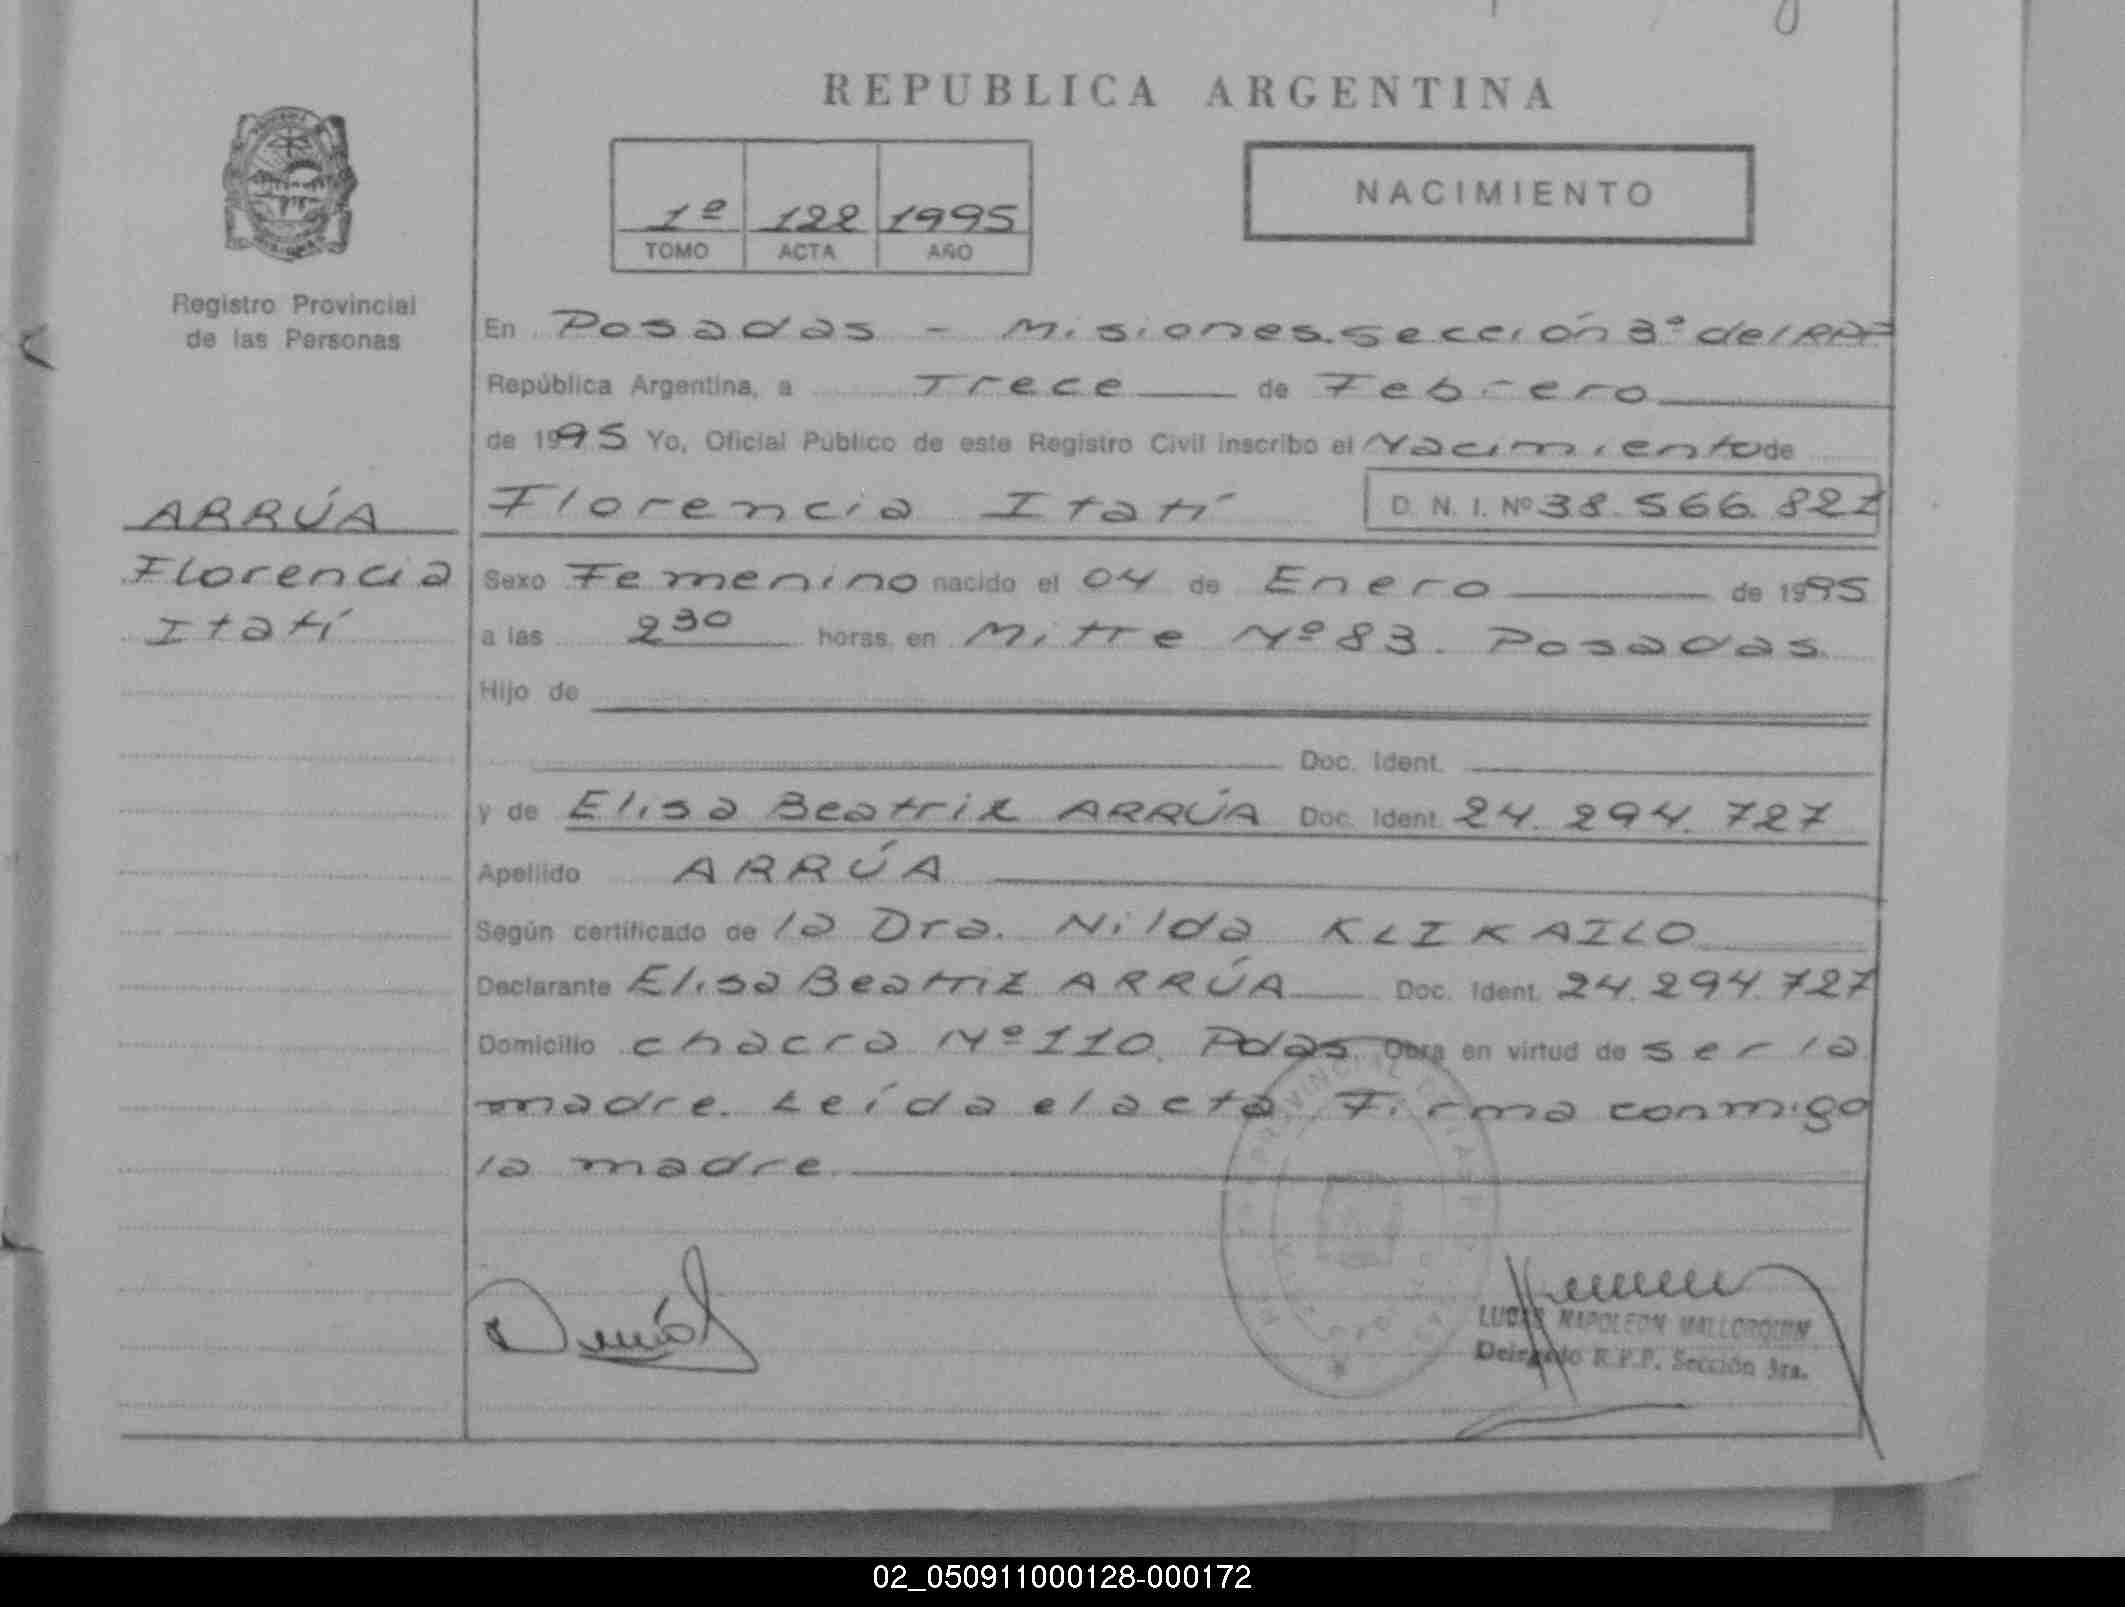 REPUBLICA ARGENTINA
1º 122 1995
TOMO ACTA AÑO
NACIMIENTO
Registro Provincial
de las Personas
En Posadas - Misiones. Sección 3ª del RPP
República Argentina, a Trece de Febrero
de 1995 Yo, Oficial Público de este Registro Civil inscribo el Nacimiento de
ARRÚA
Florencia
Itatí
Florencia Itatí D. N. I. Nº 38.566.821
Sexo Femenino nacido el 04 de Enero de 1995
a las 2 30 horas, en Mitre Nº 83. Posadas.
Hijo de
Doc. Ident.
y de Elisa Beatriz ARRÚA Doc. Ident. 24.294.727
Apellido ARRÚA
Según certificado de la Dra. Nilda KLIKAILO
Declarante Elisa Beatriz ARRÚA Doc. Ident. 24.294.727
Domicilio chacra Nº 110. Pdas. Obra en virtud de ser la
madre. Leída el acta Firma conmigo
la madre
LUCAS NAPOLEON MALLORQUIN
Delegado R.P.P. Sección 3ra.
02_050911000128-000172